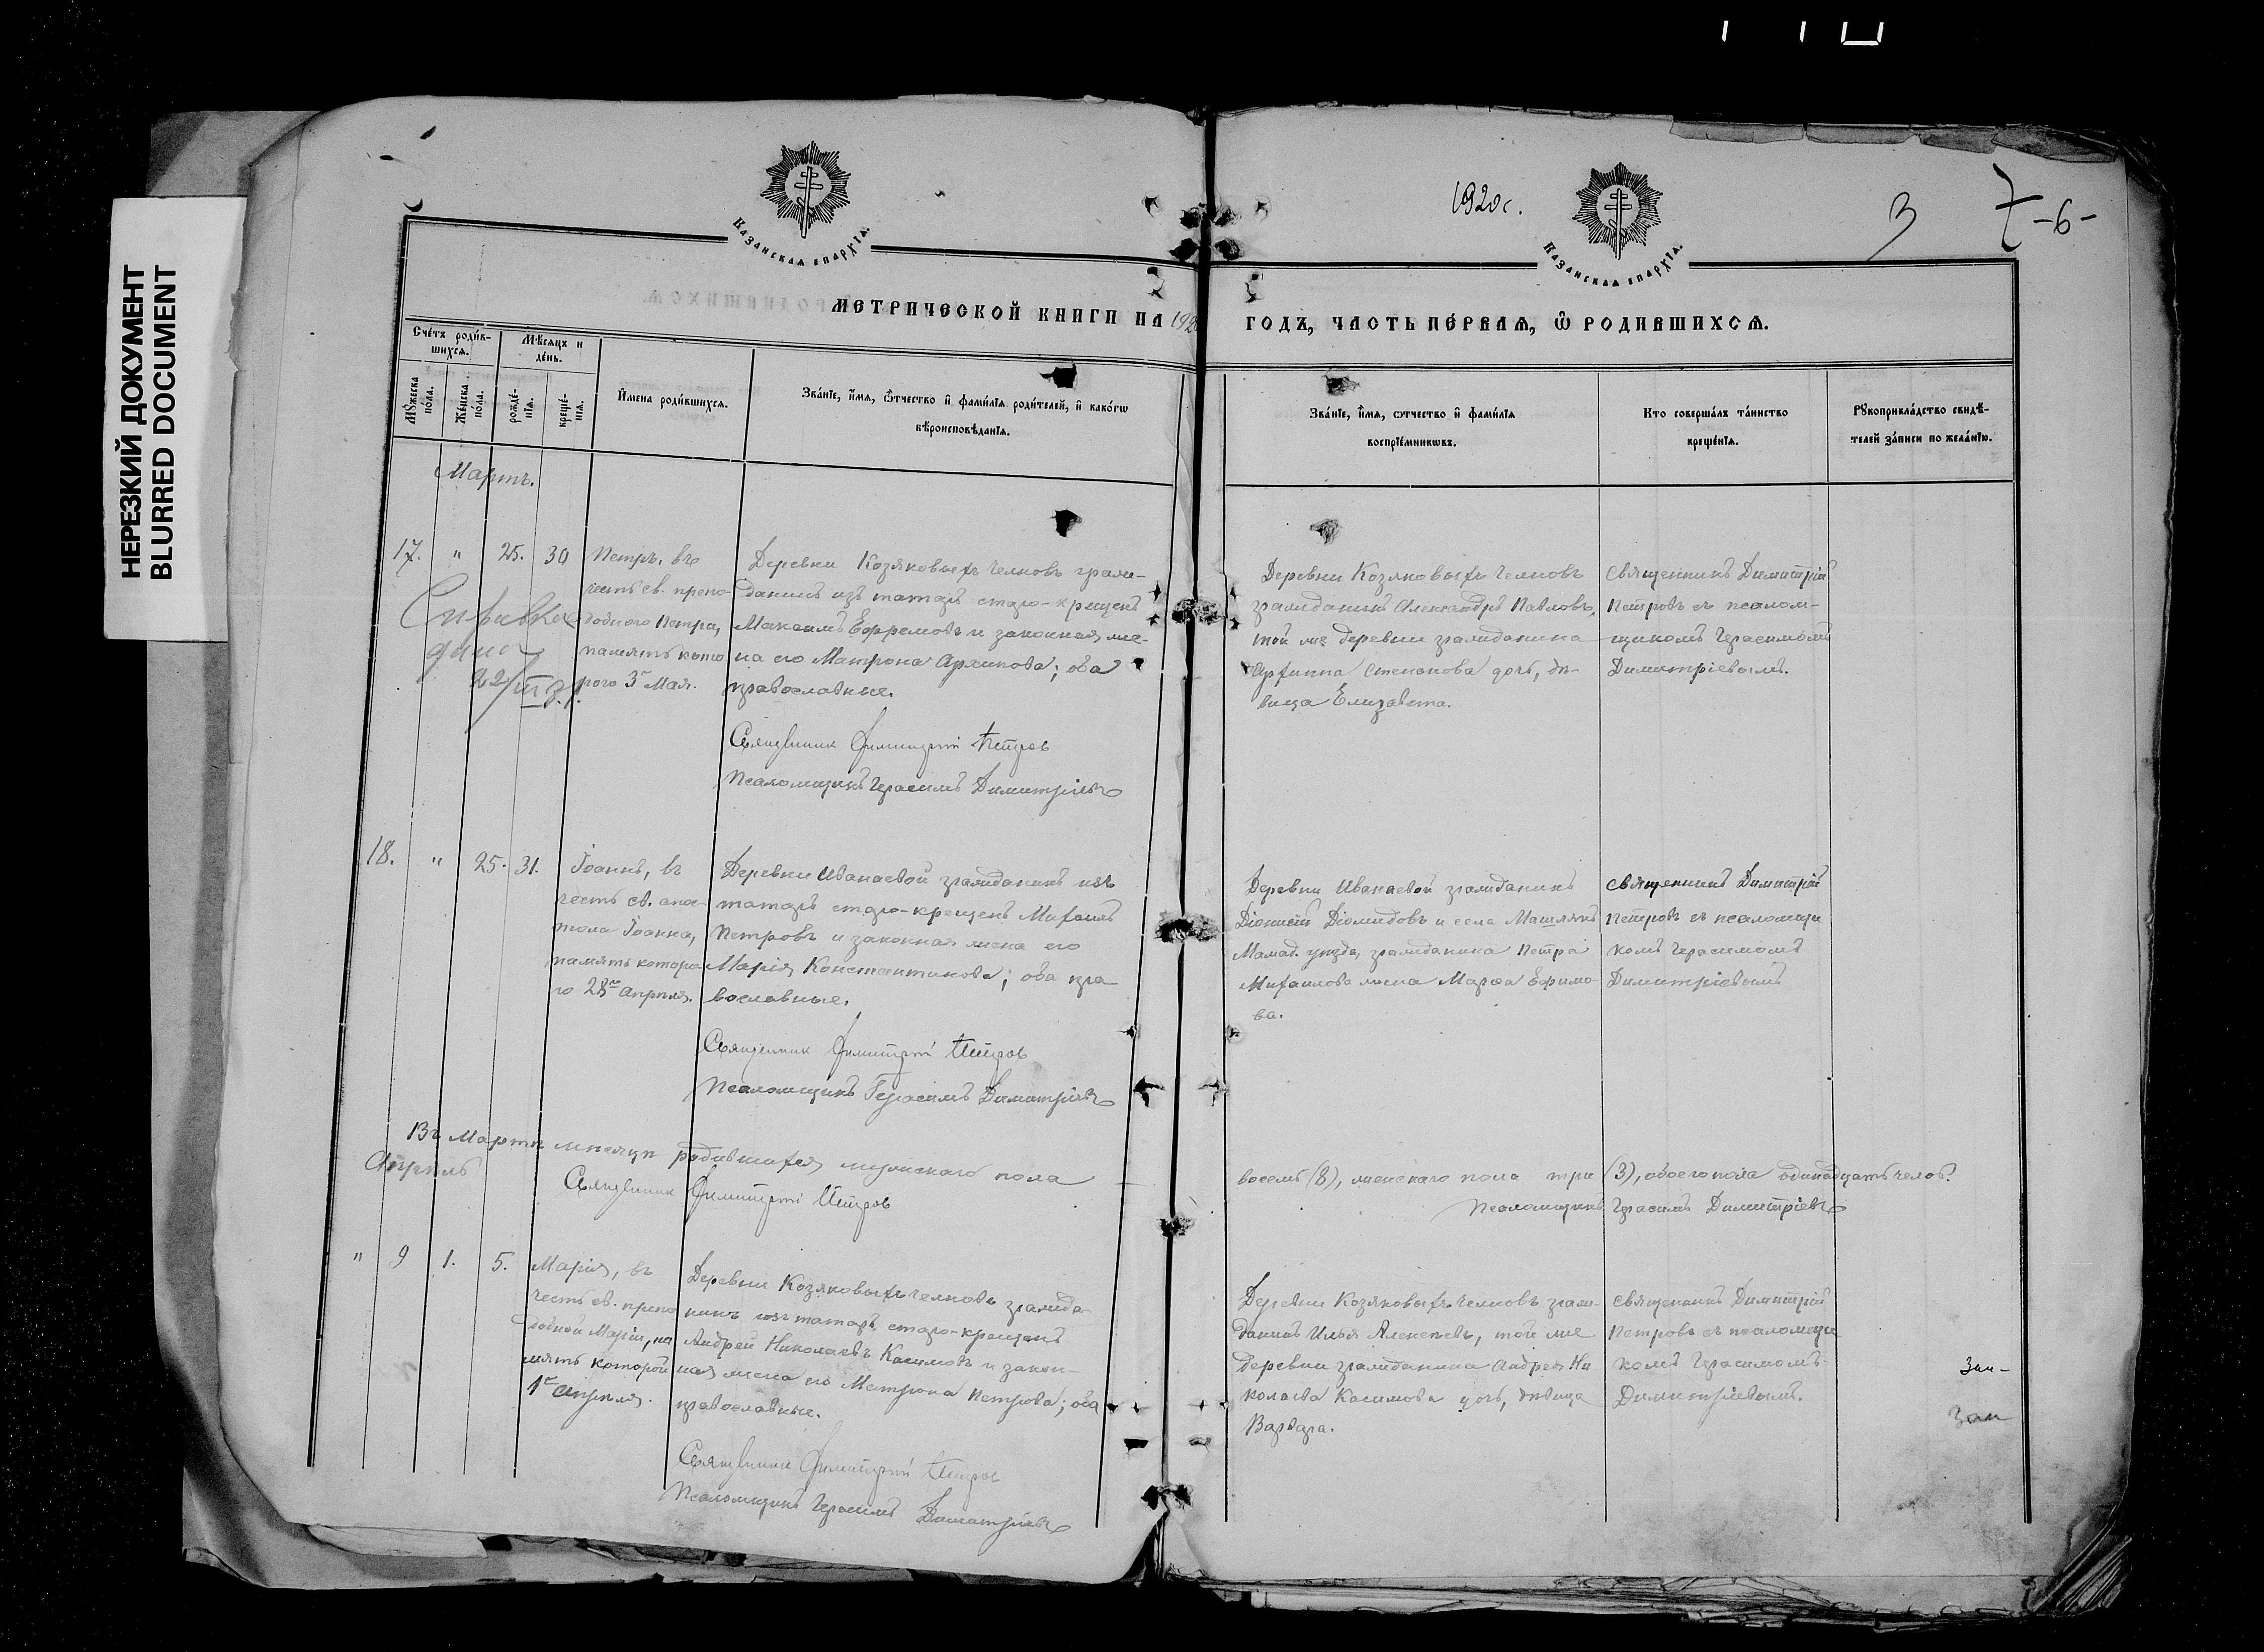 НЕРЕЗКИЙ ДОКУМЕНТ
BLURRED DOCUMENT
1920 г.
3
7
-6-
Казанская епархїѧ.
Казанская епархїѧ.
МЕТРИЧЕСКОЙ КНИГИ НА 1920
ГОДЪ, ЧАСТЬ ПЕ́РВАѦ, Ѿ РОДИВШИХСѦ.
Сче́тъ роди́в-
шихсѧ.
Мѣ́сѧцъ и
де́нь.
Мꙋ́жеска
по́ла.
Же́нска
по́ла.
рожде́-
нїѧ.
креще́-
нїѧ.
И҆мена роди́вшихсѧ.
Зва́нїе, и҆́мѧ, ѻ҆́тчество и҆ фами́лїѧ роди́телей, и҆ како́гѡ
вѣроисповѣ́данїѧ.
Зва́нїе, и҆́мѧ, ѻ҆́тчество и҆ фами́лїѧ
воспрїе́мникѡвъ.
Кто соверша́лъ та́инство
креще́нїѧ.
Рꙋкоприкла́дство свидѣ́-
телей за́писи по жела́нїю.
Мартъ.
17. " 25. 30
Петръ, въ
честь св. препо-
добнаго Петра,
память кото
рого 3го Мая.
Справка
дана
22/III
Деревни Козяковыхъ Челновъ граж-
данинъ изъ татаръ старо-крещенъ
Максимъ Ефремовъ и законная же-
на его Матрона Архипова; оба
православные.
Священник Димитрий Петров
Псаломщикъ Герасимъ Димитріевъ
Деревни Козяковыхъ Челновъ
гражданинъ Александръ Павловъ,
той же деревни гражданина
Степанова дочь, дѣ-
вица Елизавета.
Священникъ Димитрій
Петровъ съ псалом-
щикомъ Герасимомъ
Димитріевымъ.
18. " 25. 31.
Іоаннъ, въ
честь св. апос-
тола Іоанна,
память которо
го 28го Апрѣля.
Деревни Иванаевой гражданинъ изъ
татаръ старо-крещенъ Михаилъ
Петровъ и законная жена его
Марія Константинова; оба пра
вославные.
Священник Димитрий Петров
Псаломщикъ Герасимъ Димитріевъ
Деревни Иванаевой гражданинъ
Діонисій Діомидовъ и села Машлякъ
Мамад. уѣзда, гражданина Петра
Михаилова жена Марѳа Ефимо-
ва.
Священникъ Димитрій
Петровъ съ псаломщи
комъ Герасимомъ
Димитріевымъ
Въ Мартѣ мѣсяцѣ родившихся мужскаго пола
восемь (8), женскаго пола три (3), обоего пола одинадцать челов.
Апрѣль
Священник Димитрий Петров
Псаломщикъ Герасимъ Димитріевъ
" 9 1. 5.
Марія, въ
честь св. препо
добной Маріи, па
мять которой
1го Апрѣля.
Деревни Козяковыхъ Челновъ гражда-
нинъ изъ татаръ старо-крещенъ
Андрей Николаевъ Касимовъ и закон-
ная жена его Матрона Петрова; оба
православные.
Священник Димитрий Петров
Псаломщикъ Герасимъ Димитріевъ
Деревни Козяковыхъ Челновъ граж-
данинъ Илья Алексѣевъ, той же
деревни гражданина Андрея Ни
колаева Касимова дочь, дѣвица
Варвара.
Священникъ Димитрій
Петровъ съ псаломщи
комъ Герасимомъ
Димитріевымъ.